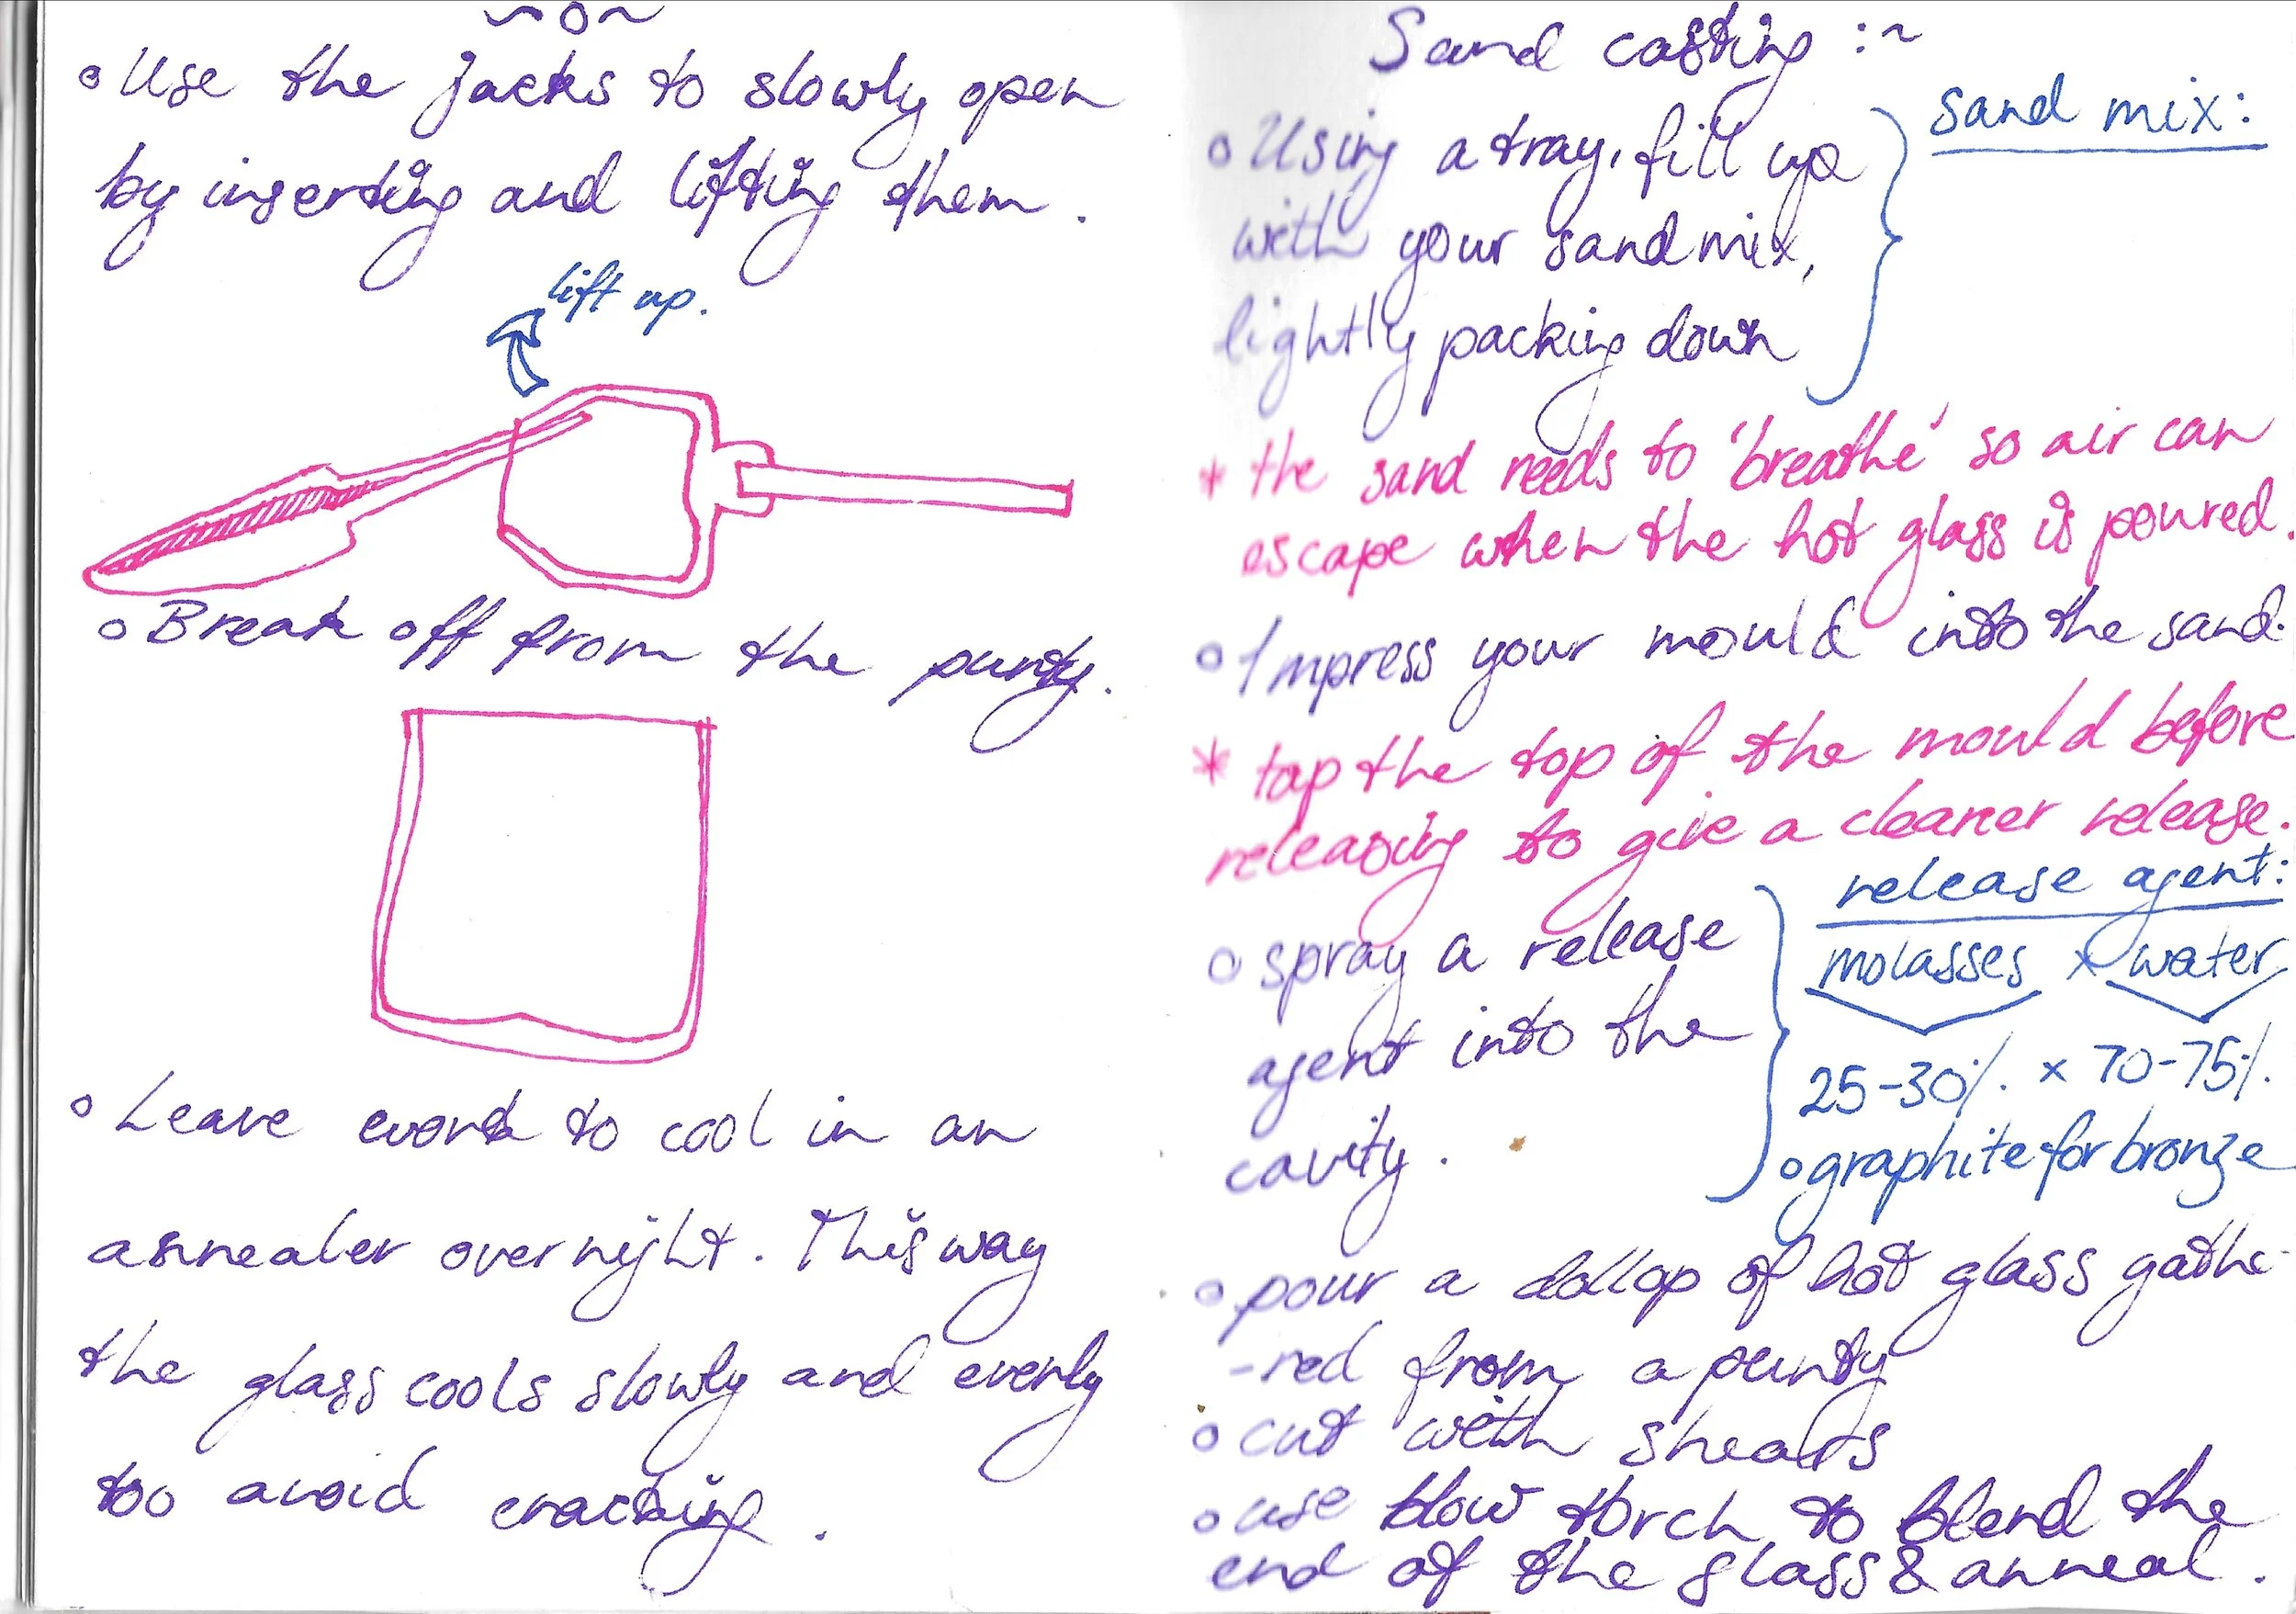 ~o~
° Use the jacks to slowly open
by inserting and lifting them.
lift up.
° Break off from the punty.
° Leave work to cool in an
annealer overnight. This way
the glass cools slowly and evenly
too avoid cracking.
Sand casting :~
° Using a tray, fill up
with your sand mix,
lightly packing down
sand mix:
* the sand needs to 'breathe' so air can
escape when the hot glass is poured.
° Impress your mould into the sand.
* tap the top of the mould before
releasing to give a cleaner release.
° spray a release
agent into the
cavity.
release agent:
molasses x water
25-30% x 70-75%
° graphite for bronze
° pour a dollop of hot glass gathe-
-red from a punty
° cut with shears
° use blow torch to blend the
end of the glass & anneal.